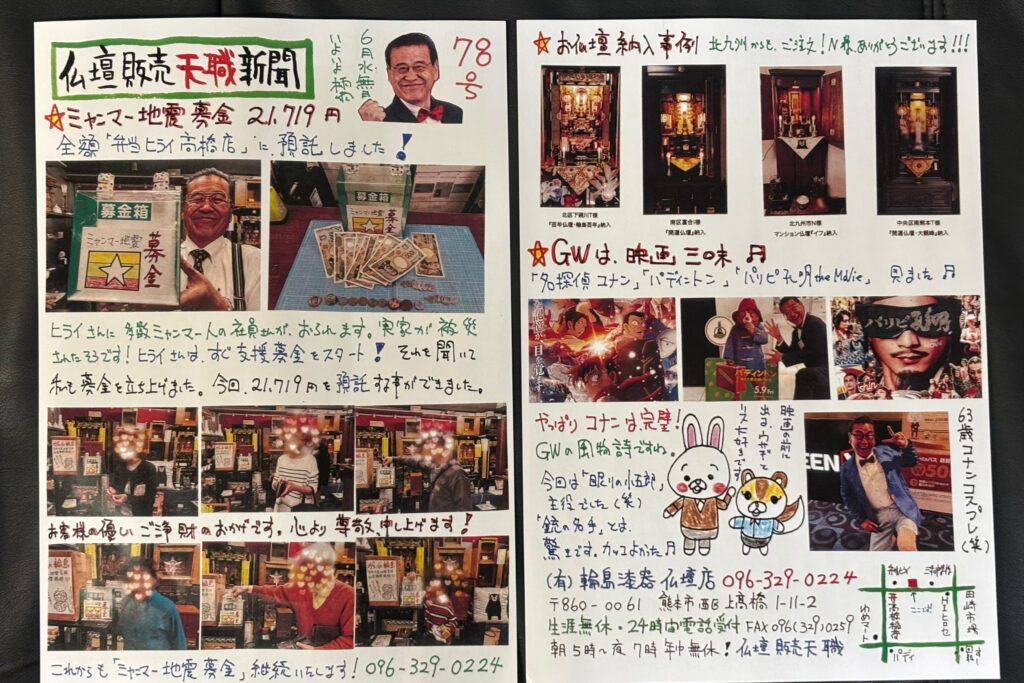 仏壇販売天職新聞
6月水無月
いよいよ梅雨
78号
☆ミャンマー地震募金 21,719円
全額「弁当ヒライ高橋店」に、預託しました!
募金箱
ミャンマー地震
募金
募金箱
ミャンマー地震
ヒライさんに多数ミャンマー人の社員さんが、おられます。実家が被災
されたそうです!ヒライさんは、すぐ支援募金をスタート!それを聞いて
私も募金を立ち上げました。今回、21,719円を預託する事ができました。
お客様の優しいご浄財のおかげです。心より尊敬申し上げます!
これからも「ミャンマー地震募金」継続いたします!096-329-0224
☆お仏壇納入事例 北九州からも、ご注文!N様、ありがとうございます!!!
北区下硯川T様
『百年仏壇・輪島百年』納入
南区富合I様
『開運仏壇』納入
北九州市N様
マンション仏壇『イフ』納入
中央区南熊本T様
『開運仏壇・大観峰』納入
☆GWは、映画三昧♬
「名探偵コナン」「パディントン」「パリピ孔明the Movie」見ました♬
パディントン
5.9
パリピ孔明
やっぱりコナンは完璧!
GWの風物詩ですね。
今回は「眠りの小五郎」
主役でした(笑)
「銃の名手」とは、
驚きです。カッてよかった♬
映画の前に
出る、ウサギと
リス大好きです
63歳コナンコスプレ(笑)
(有)輪島漆器仏壇店 096-329-0224
〒860-0061 熊本市西区上高橋1-11-2
生涯無休・24時間電話受付 FAX096(329)0259
朝5時~夜7時年中無休!仏壇販売天職
ここだよ
田崎市場
ゆめマート
パディ